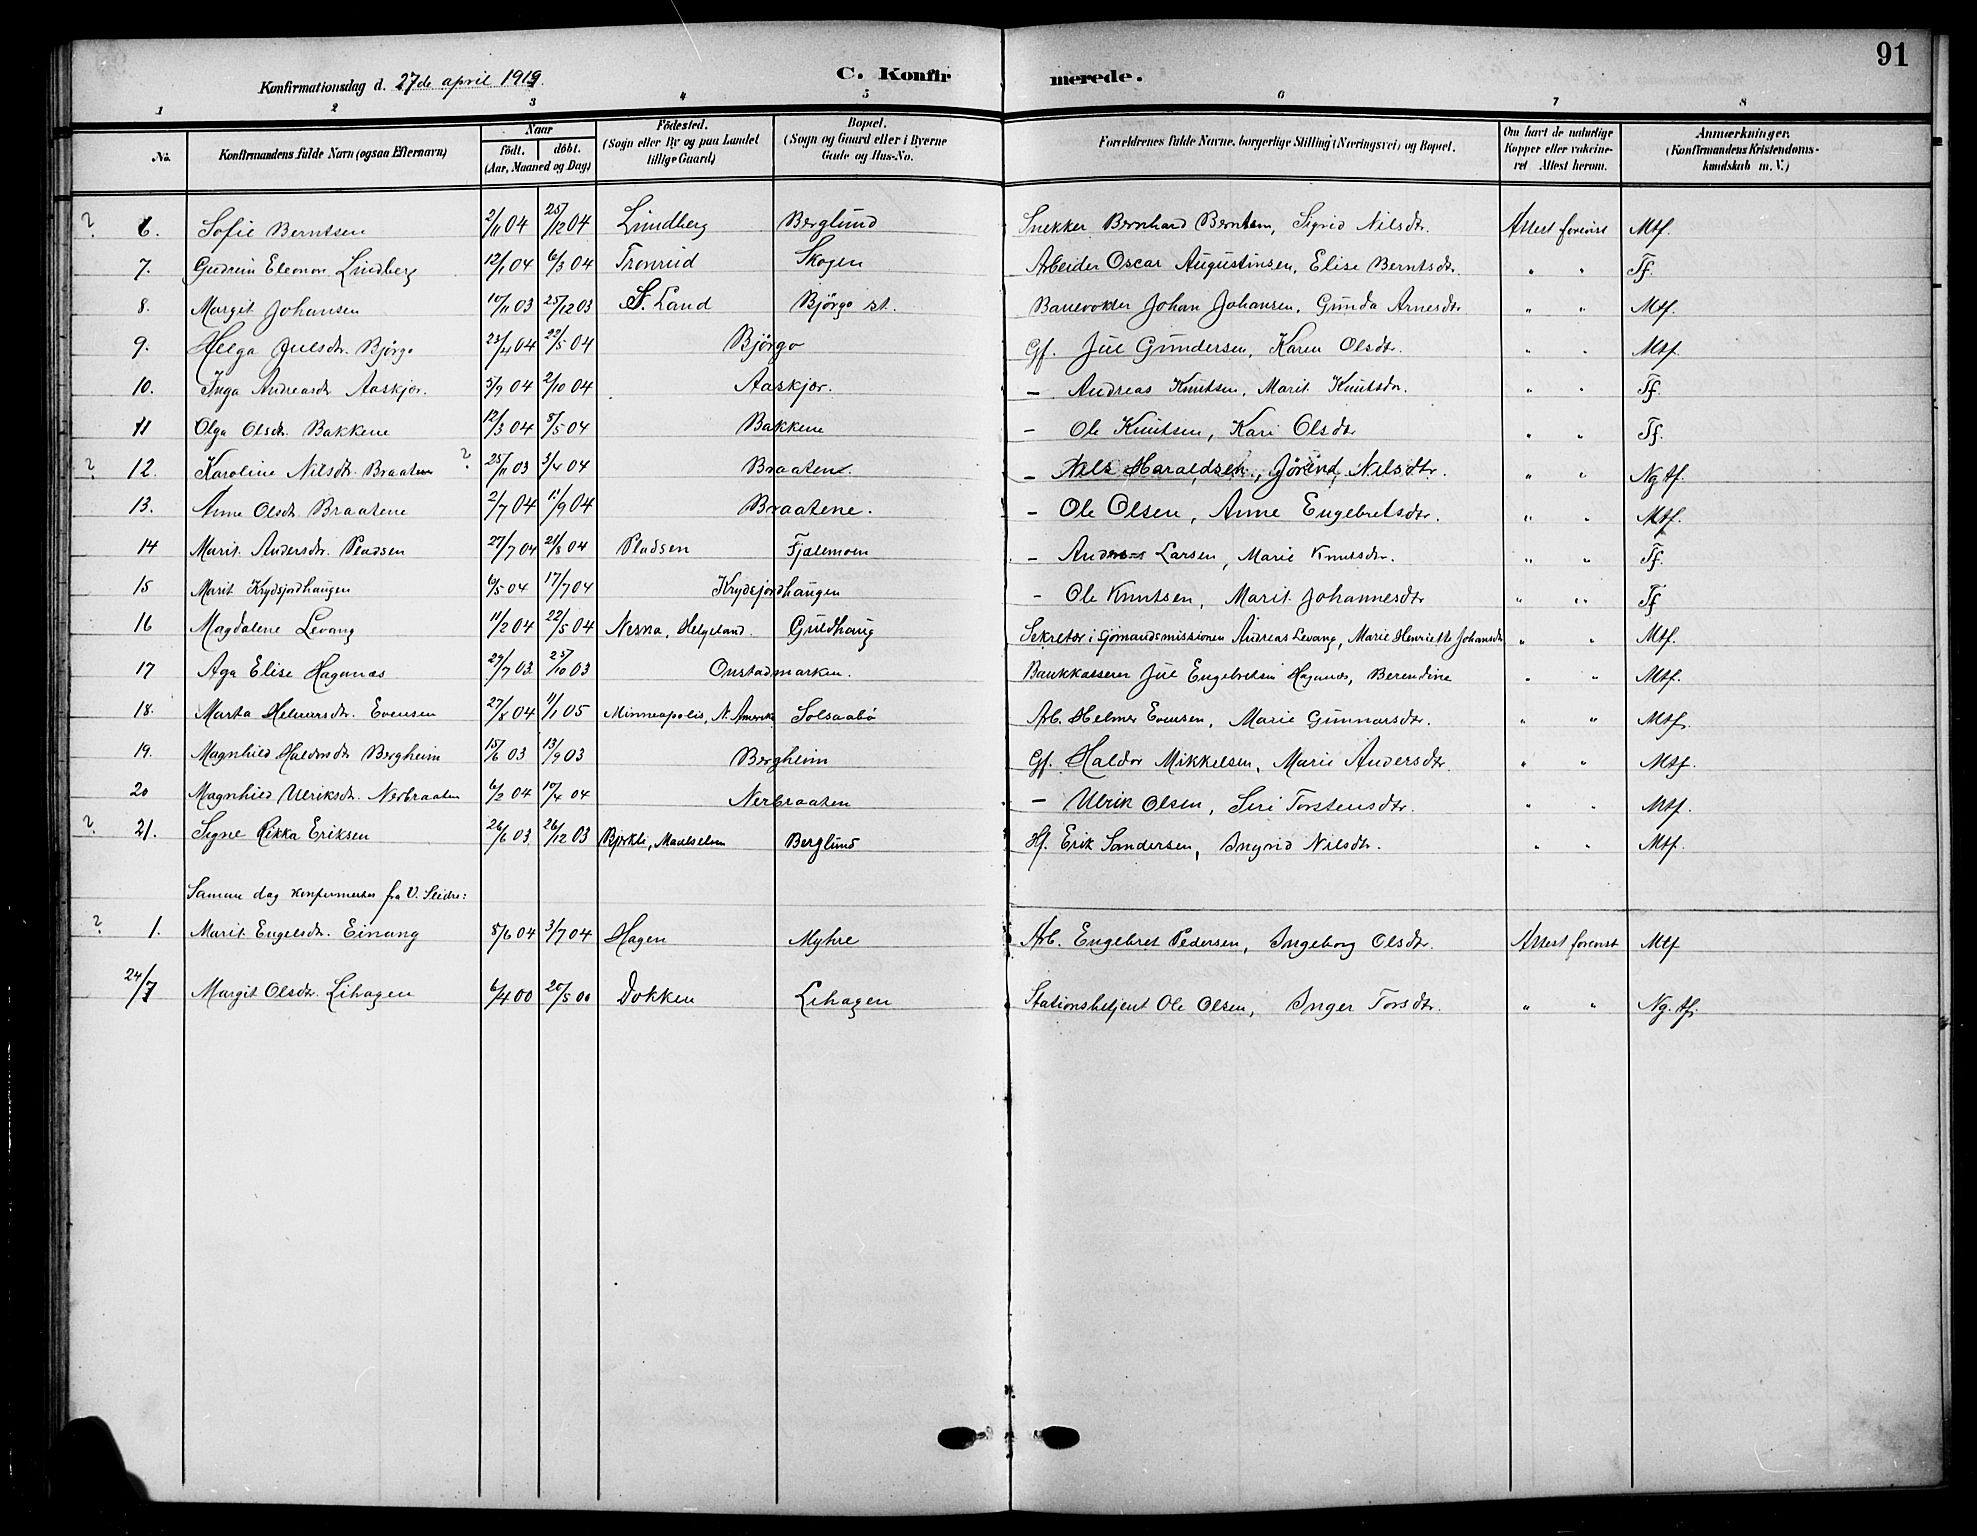 91
Konfirmationsdag d. 27de april 1919. C. Konfirmerede.
1 2 3 4 5 6 7 8
No. Konfirmandens fulde Navn (ogsaa Efternavn) Naar født. døbt. (Aar, Maaned og Dag) Fødested. (Sogn eller By og paa Landet tillige Gaard) Bopæl. (Sogn og Gaard eller i Byerne Gade og Hus-No. Forældrenes fulde Navne, borgerlige Stilling (Næringsvei) og Bopæl. Om havt de naturlige Kopper eller vakcineret Attest herom. Anmærkninger. (Konfirmandens Kristendomskundskab m. V.)
? 6. Sofie Berntsen 2/11 04 25/12 04 Lindberg Berglund Snekker Bernhard Berntsen, Sigrid Nilsdtr. Attest forevist Mtf.
7. Gudrun Eleonor Lindberg 12/1 04 6/3 04 Tronrud Skogen Arbeider Oscar Augustinsen, Elise Berntsdtr. " " Tf.
8. Margit Johansen 10/11 03 25/12 03 S. Land Bjørgo st. Banevokter Johan Johansen, Gunda Arnesdtr " " Mtf.
9. Helga Julsdtr. Bjørgo 23/4 04 22/5 04 Bjørgo Gf. Jul Gundersen, Karen Olsdtr. " " Mtf.
10. Inga Andreasdtr. Aaskjær. 5/9 04 2/10 04 Aaskjær. — Andreas Knutsen, Marit Knutsdtr. " " Tf.
11 Olga Olsdtr. Bakkene 12/3 04 8/5 04 Bakkene - Ole Knutsen, Kari Olsdtr " " Tf.
? 12. Karoline Nilsdtr. Braaten ? 25/11 03 3/4 04 Braatene. - Nils Haraldsen, Jørind Nilsdtr. " " Ng tf.
13. Anne Olsdtr. Braatene 2/7 04 11/9 04 Braatene. - Ole Olsen, Anne Engebretsdtr. " " Mtf.
14 Marit Andersdtr. Pladsen 27/7 04 21/8 04 Pladsen Fjælemoen - Anders Larsen, Marie Knutsdtr. " " Tf.
15 Marit Krydsjordhaugen 6/5 04 17/7 04 Krydsjordhaugen - Ole Knutsen, Marit Johannesdtr " " Tf
16 Magdalene Levang 11/2 04 22/5 04 Nesna, Helgeland. Guldhaug Sekretær i sjømandsmissionen Andreas Levang, Marie Henriette Johansdtr " " Mtf.
17 Aga Elise Haganæs 29/7 03 25/10 03 Onstadmarken. Bankkasserer Jul Engebretsen Haganæs, Berendine " " Mtf.
18. Marta Helmersdtr. Evensen 27/8 04 1/1 05 Minneapolis, N. Amerika Solsaabø Arb. Helmer Evensen, Marie Gunnarsdtr. " " Mtf.
19. Magnhild Haldorsdtr Bergheim 15/6 03 13/9 03 Bergheim Gf. Haldor Mikkelsen, Marie Andersdtr. " " Mtf.
20 Magnhild Ulriksdtr. Nerbraaten 6/2 04 10/4 04 Nerbraaten — Ulrik Olsen, Siri Torstensdtr. " " Mtf.
? 21. Signe Rikka Eriksen 26/6 03 26/12 03 Bjerkli, Maalselven Berglund Hf. Erik Sandersen, Ingrid Nilsdtr. " " Mtf.
Samme dag konfirmertes fra V. Slidre:
? 1. Marit Engelsdtr. Einang 8/6 04 3/7 04 Hagen Myhre Arb. Engebret Pedersen, Ingeborg Olsdtr. Attest forevist Mtf
24/7 Margit Olsdtr. Lihagen 6/4 00 20/5 00 Dokken Lihagen Stationsbetjent Ole Olsen, Inger Torsdtr. " " Ng. tf.